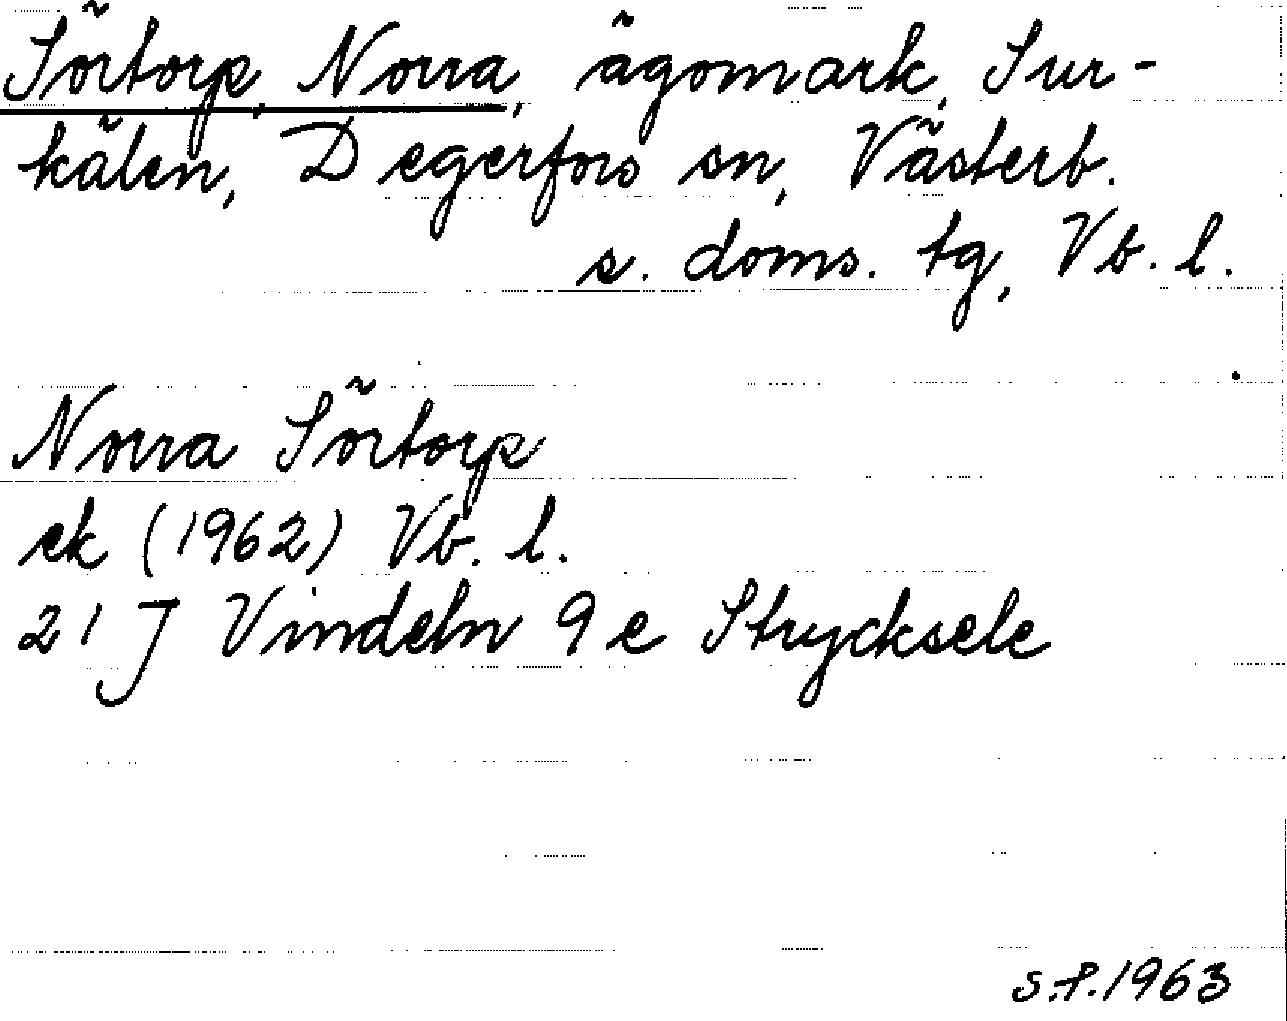 Sörtorp, Norra, ägomark, Sur-
kälen, Degerfors sn, Västerb.
s. doms. tg, Vb. l.
Norra Sörtorp
ek (1962) Vb. l.
21 J Vindeln 9 e Strycksele
S.F. 1963